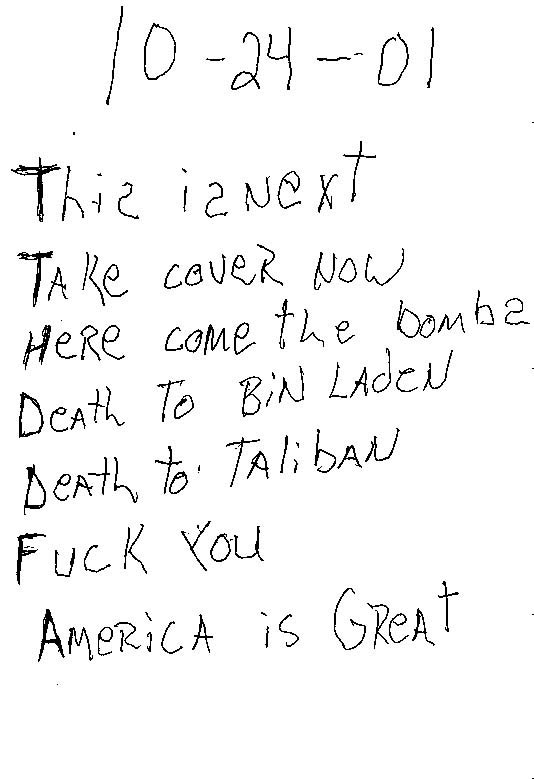 10-24-01
This is Next
TAKe coveR Now
HeRe come the bombs
DeAth To BiN LAdeN
DeAth to TAlibAN
Fuck You
AMeRicA is GReAt